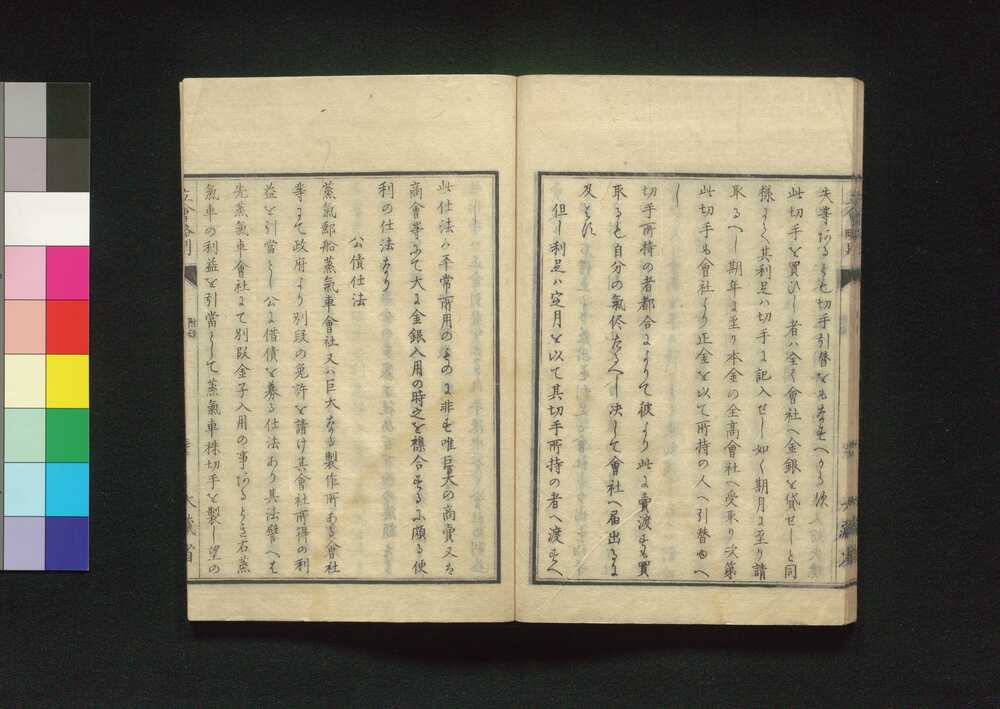 失等ある𪜈切手引替をもなすへからす
此切手を買ひし者ハ全く會社へ金銀を貸せしと同
樣にて其利足ハ切手に記入せし如く期月に至り請
取るへし期年に至り本金の全高會社へ受取り次第
此切手も會社より正金を以て所持の人へ引替ゆへ
し
切手所持の者都合によりて彼より此に賣渡すも買
取るも自分の氣侭なるへし决して會社へ届出るに
及はす
但し利足ハ定月を以て其切手所持の者へ渡すへ
此仕法ハ平常所用のものに非す唯巨大の商賣又は
商會等にて大に金銀入用の時之を集合するに頗る便
利の仕法なり
公債仕法
蒸氣郵船蒸氣車會社又ハ巨大なる製作所ある會社
等にて政府より別段の免許を請け其會社所得の利
益を引當とし公に借債を募る仕法あり其法譬へは
先蒸氣車會社にて別段金子入用の事あるとき右蒸
氣車の利益を引當として蒸氣車株切手を製し望の
立會略則
附録
大藏省